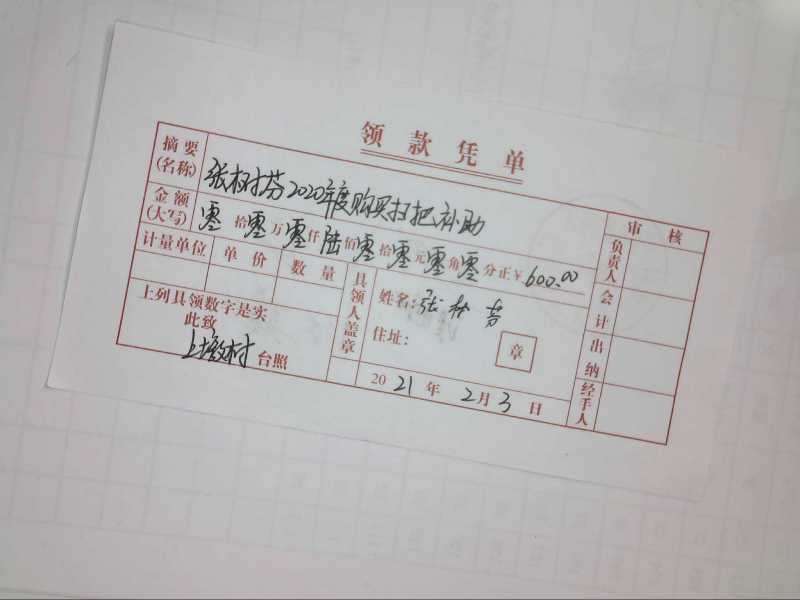 领款凭单
摘要(名称) 张树芬2020年度购买扫把补助
金额(大写) 零拾零万零仟陆佰零拾零元零角零分正¥600.00
计量单位 单价 数量
上列具领数字是实
此致
上墩村 台照
具领人盖章
姓名:张树芬
住址:
章
2021年2月3日
审核
负责人
会计
出纳
经手人